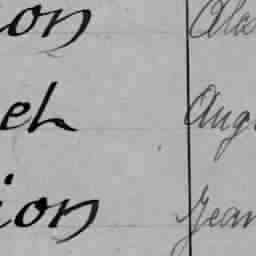 ion Ala
eh Aug
ion Jean